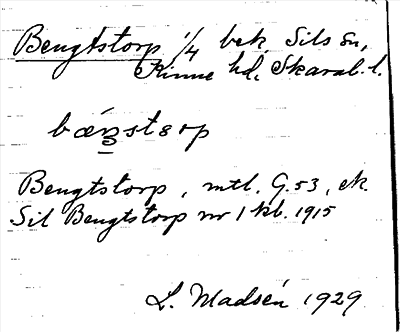 Bengtstorp 1/4 bek. Sils sn,
Kinne hd, Skarab. l.
bǽŋstorp
Bengtstorp, mtl. G. 53, ek.
Sil Bengtstorp nr 1 kb. 1915
L. Madsén 1929